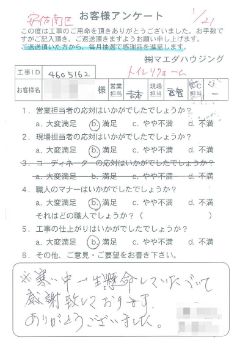 安佐南区
お客様アンケート
1/21
この度は工事のご用命を頂きありがとうございました。お手数で
すがご記入頂き、ご返送頂きますようお願い申し上げます。
ご返送頂いた方から、毎月抽選で感謝品を進呈します。
㈱マエダハウジング
工事ID 4605162 トイレリフォーム
お客様名 様 営業担当 現場担当
1. 営業担当者の応対はいかがでしたでしょうか?
a. 大変満足 b. 満足 c. やや不満 d. 不満
2. 現場担当者の応対はいかがでしたでしょうか?
a. 大変満足 b. 満足 c. やや不満 d. 不満
3. コーディネーターの応対はいかがでしたでしょうか?
a. 大変満足 b. 満足 c. やや不満 d. 不満
4. 職人のマナーはいかがでしたでしょうか?
a. 大変満足 b. 満足 c. やや不満 d. 不満
それはどの職人でしょうか?( )
5. 工事の仕上がりはいかがでしたでしょうか?
a. 大変満足 b. 満足 c. やや不満 d. 不満
6. その他、ご意見・ご要望をお書き下さい。
※寒い中一生懸命していただいて
感謝致しております。
ありがとうございました。